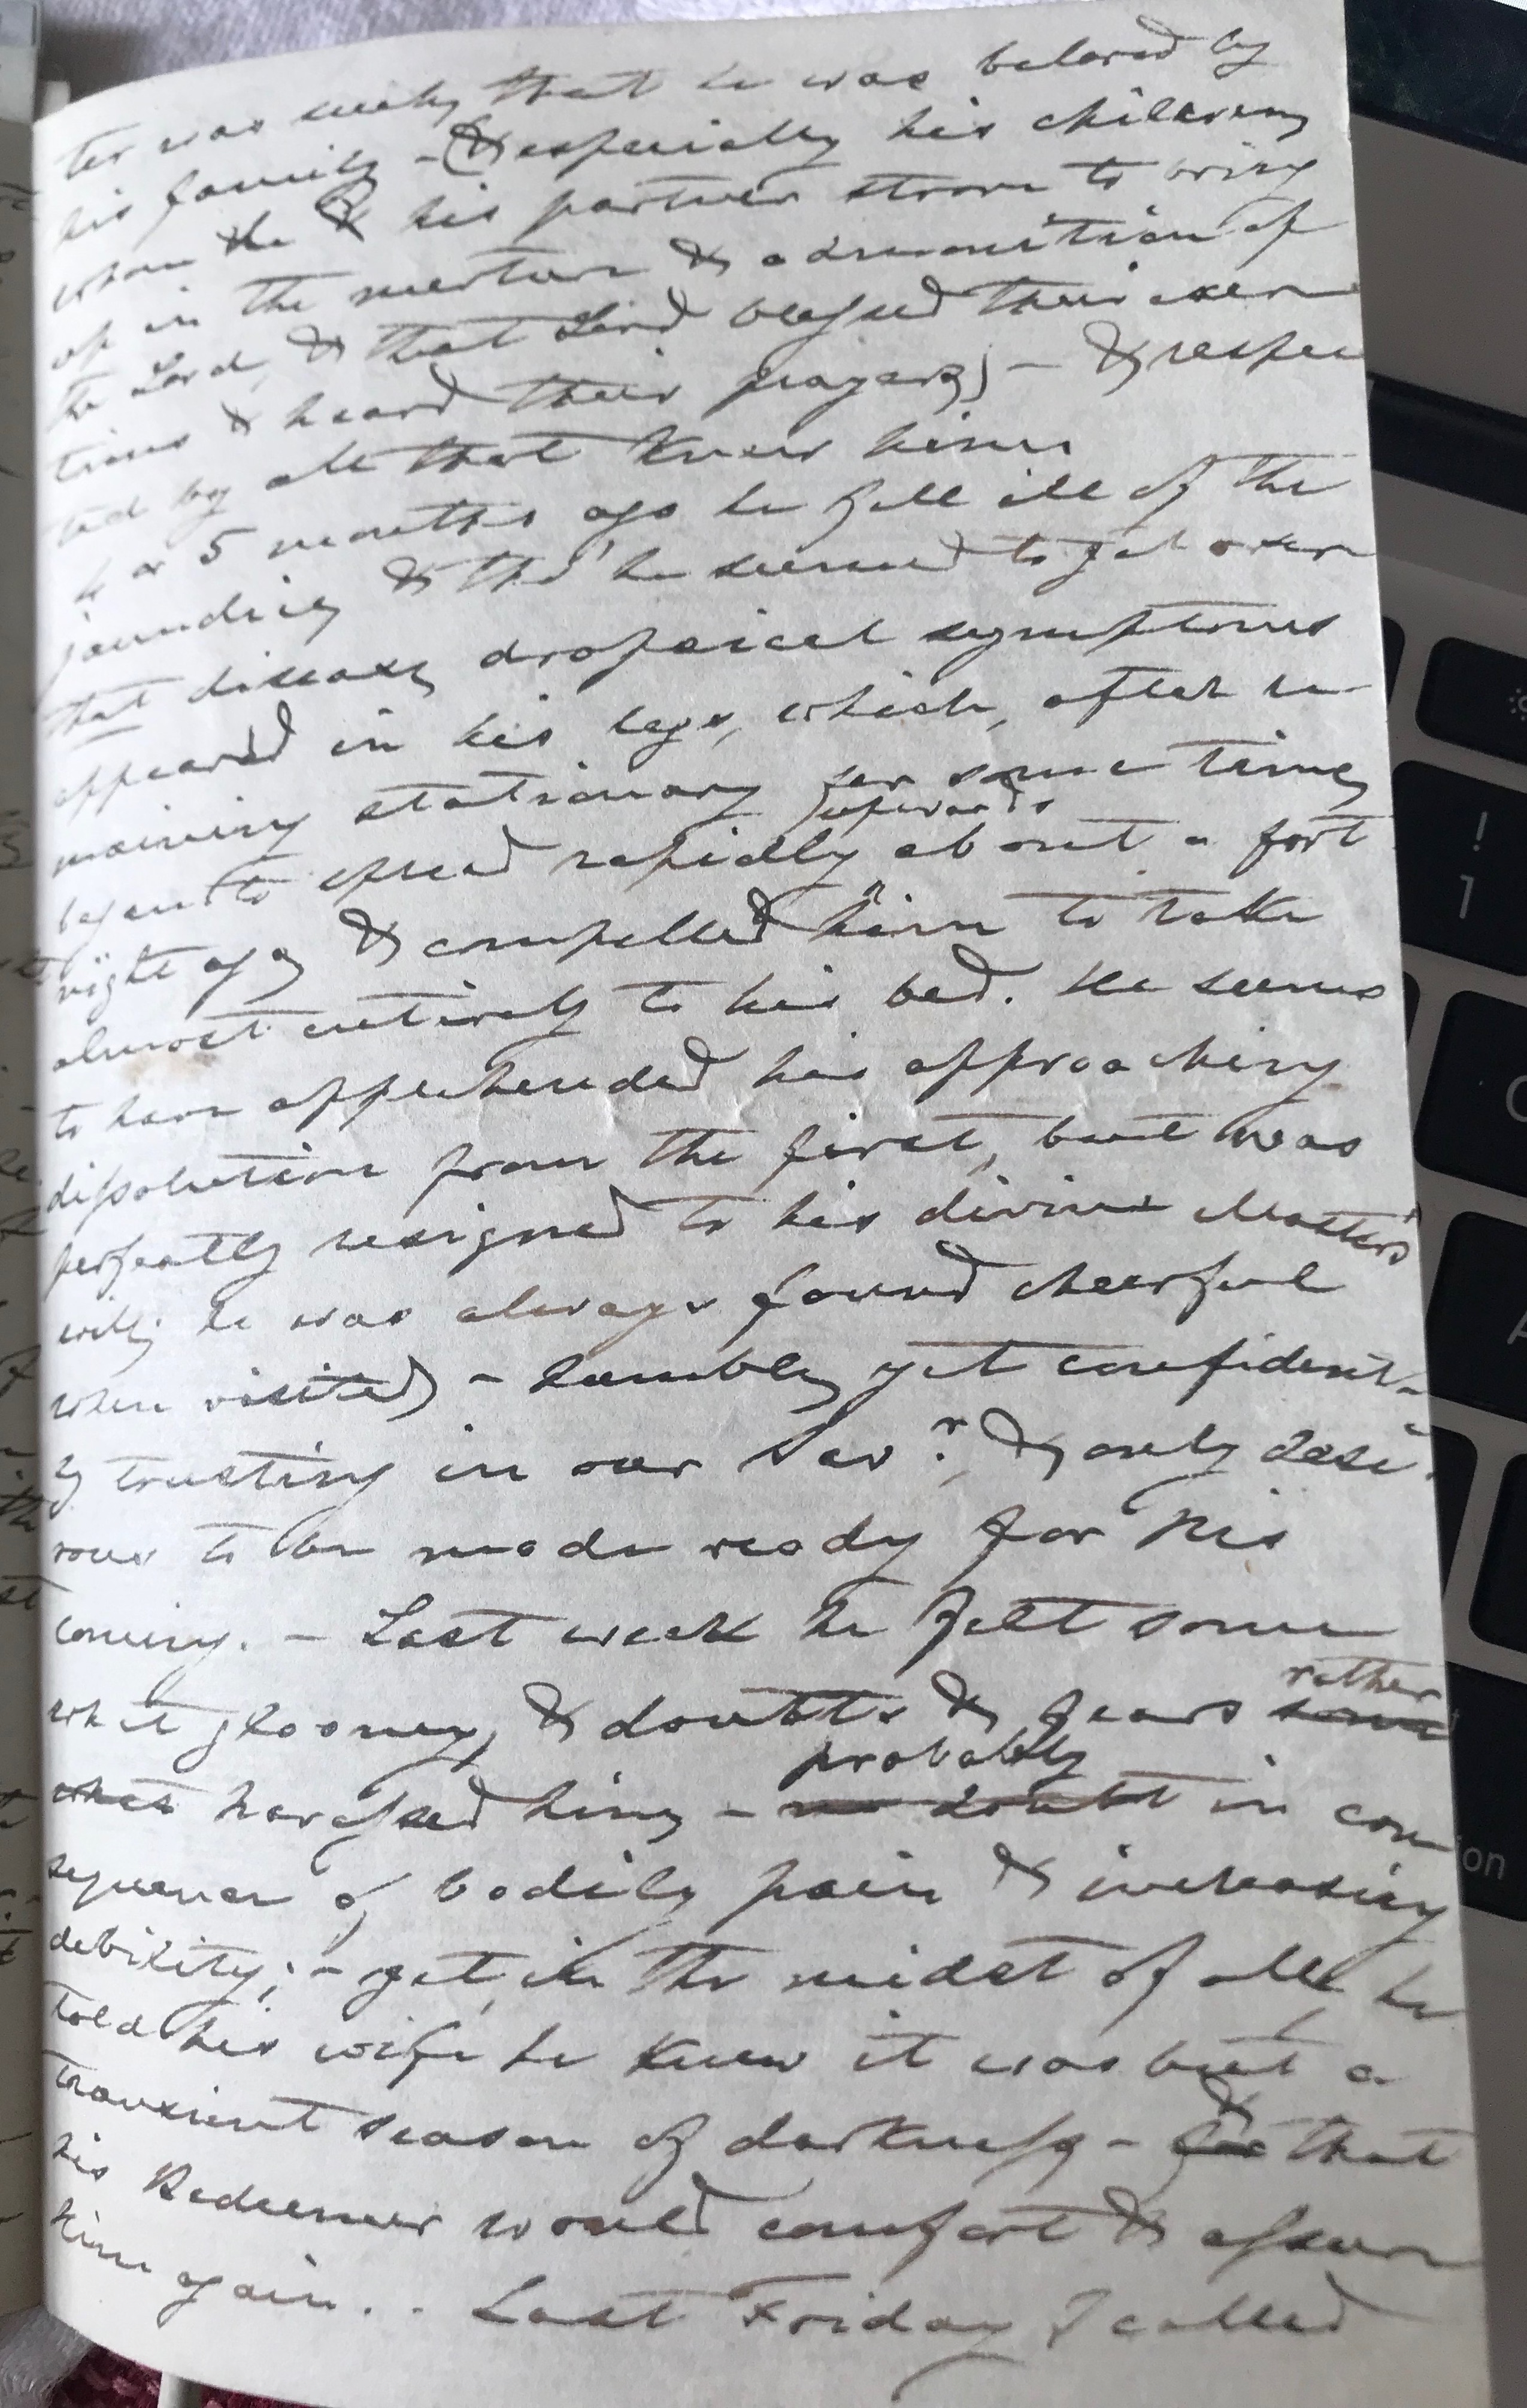 ter was such, that he was beloved by
his family - (& especially his children,
whom he & his partner strove to bring
up in the nurture & admonition of
the Lord, & that Lord blessed their exer
tions & heard their prayers) - & respec
ted by all that knew him.
4 or 5 months ago he fell ill of the
jaundice, & tho' he seemed to get over
that disease, dropsical symptoms
appeared in his legs, which, after re-
maining stationary for some time,
began to spread rapidly upwards about a fort
night ago, & compelled him to take
almost entirely to his bed. He seems
to have apprehended his approaching
dissolution from the first, but was
perfectly resigned to his divine Master's
will; he was always found cheerful
when visited, - humbly, yet confident-
ly trusting in our Savr., & only desi-
rous to be made ready for His
coming. - Last week he felt some
what gloomy, & doubts & fears some rather
what harassed him, - no doubt probably in con
sequence of bodily pain & increasing
debility; - yet, in the midst of all, he
told his wife he knew it was but a
transient season of darkness, - & that
his Redeemer would comfort & assure
him again. . Last Friday I called